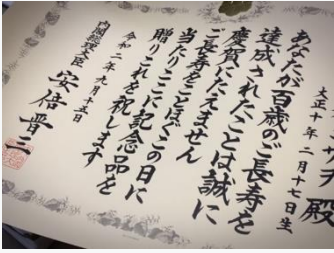 殿
大正十年二月十七日生
あなたが百歳のご長寿を
達成されたことは誠に
慶賀にたえません
ご長寿をことほぐこの日に
当たりここに記念品を
贈りこれを祝します
令和二年九月十五日
内閣総理大臣 安倍晋三